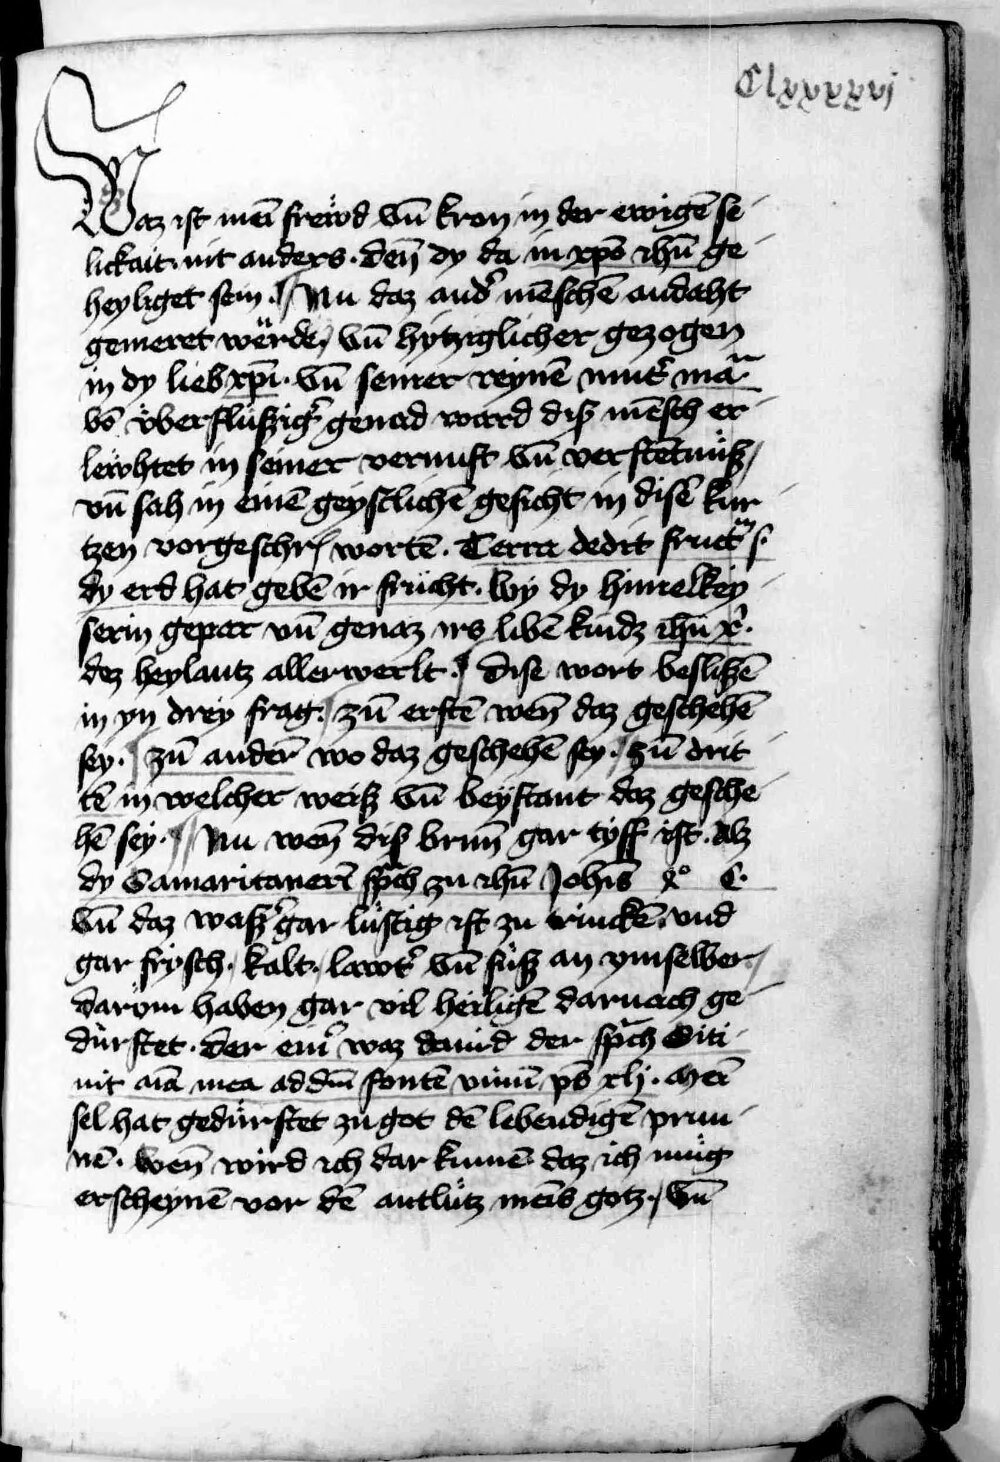 Clxxxxvj
Waz ist mei᷑ frewd vn̄ kron in der ewigē se
lickait. nit anders. den̄ dy da in xp̄o ih̄u ge
heyliget sein. Nu daz and᷑ mēschē andaht
gemeret werdē, vn̄ hytziglicher gezogen
in dy lieb xp̄i. vn̄ seiner reynē mut᷑ ma᷑
vō vberflüßig᷑ genad ward diß mēsch er
lewhtet in seiner vernuft vn̄ verstētnüß
vn̄ sah in einē geystlichē gesicht in disē kur
tzen vorgeschrꝭ wortē. Terra dedit fructū ſ.
dy erd hat gebē ir frücht. wy dy himelkey
serin gepar vn̄ genaz irs libē kindz ih̄u x᷑.
dez heylantz aller werlt. dise wort beslißē
in yn drey frag. zū erstē wen̄ daz geschehē
sey. zū ander̄ wo daz geschehē sey. zū drit
tē in welcher weiß vn̄ beystant daz gesche
hē sey. Nu wen̄ diß brun̄ gar tyff ist. Alz
dy Samaritanerī sp̄ch zu ih̄u Joh̄is xͦ C.
vn̄ daz waß᷑ gar lüstig ist zu trinckē. vnd
gar frysch, kalt, lawt᷑ vn̄ süß an ym selber
darüm haben gar vil heiligē darnach ge
dürstet. Der ein᷑ waz dauid der sp̄ch Siti
uit aīa mea ad dm̄ fontē viuū ps̄ xlj. Mei᷑
sel hat gedürstet zu got dē lebendigē prun
nē. wen̄ wird ich dar kumē daz ich müg
erscheynē vor dē antlütz meīs gotz, vn̄